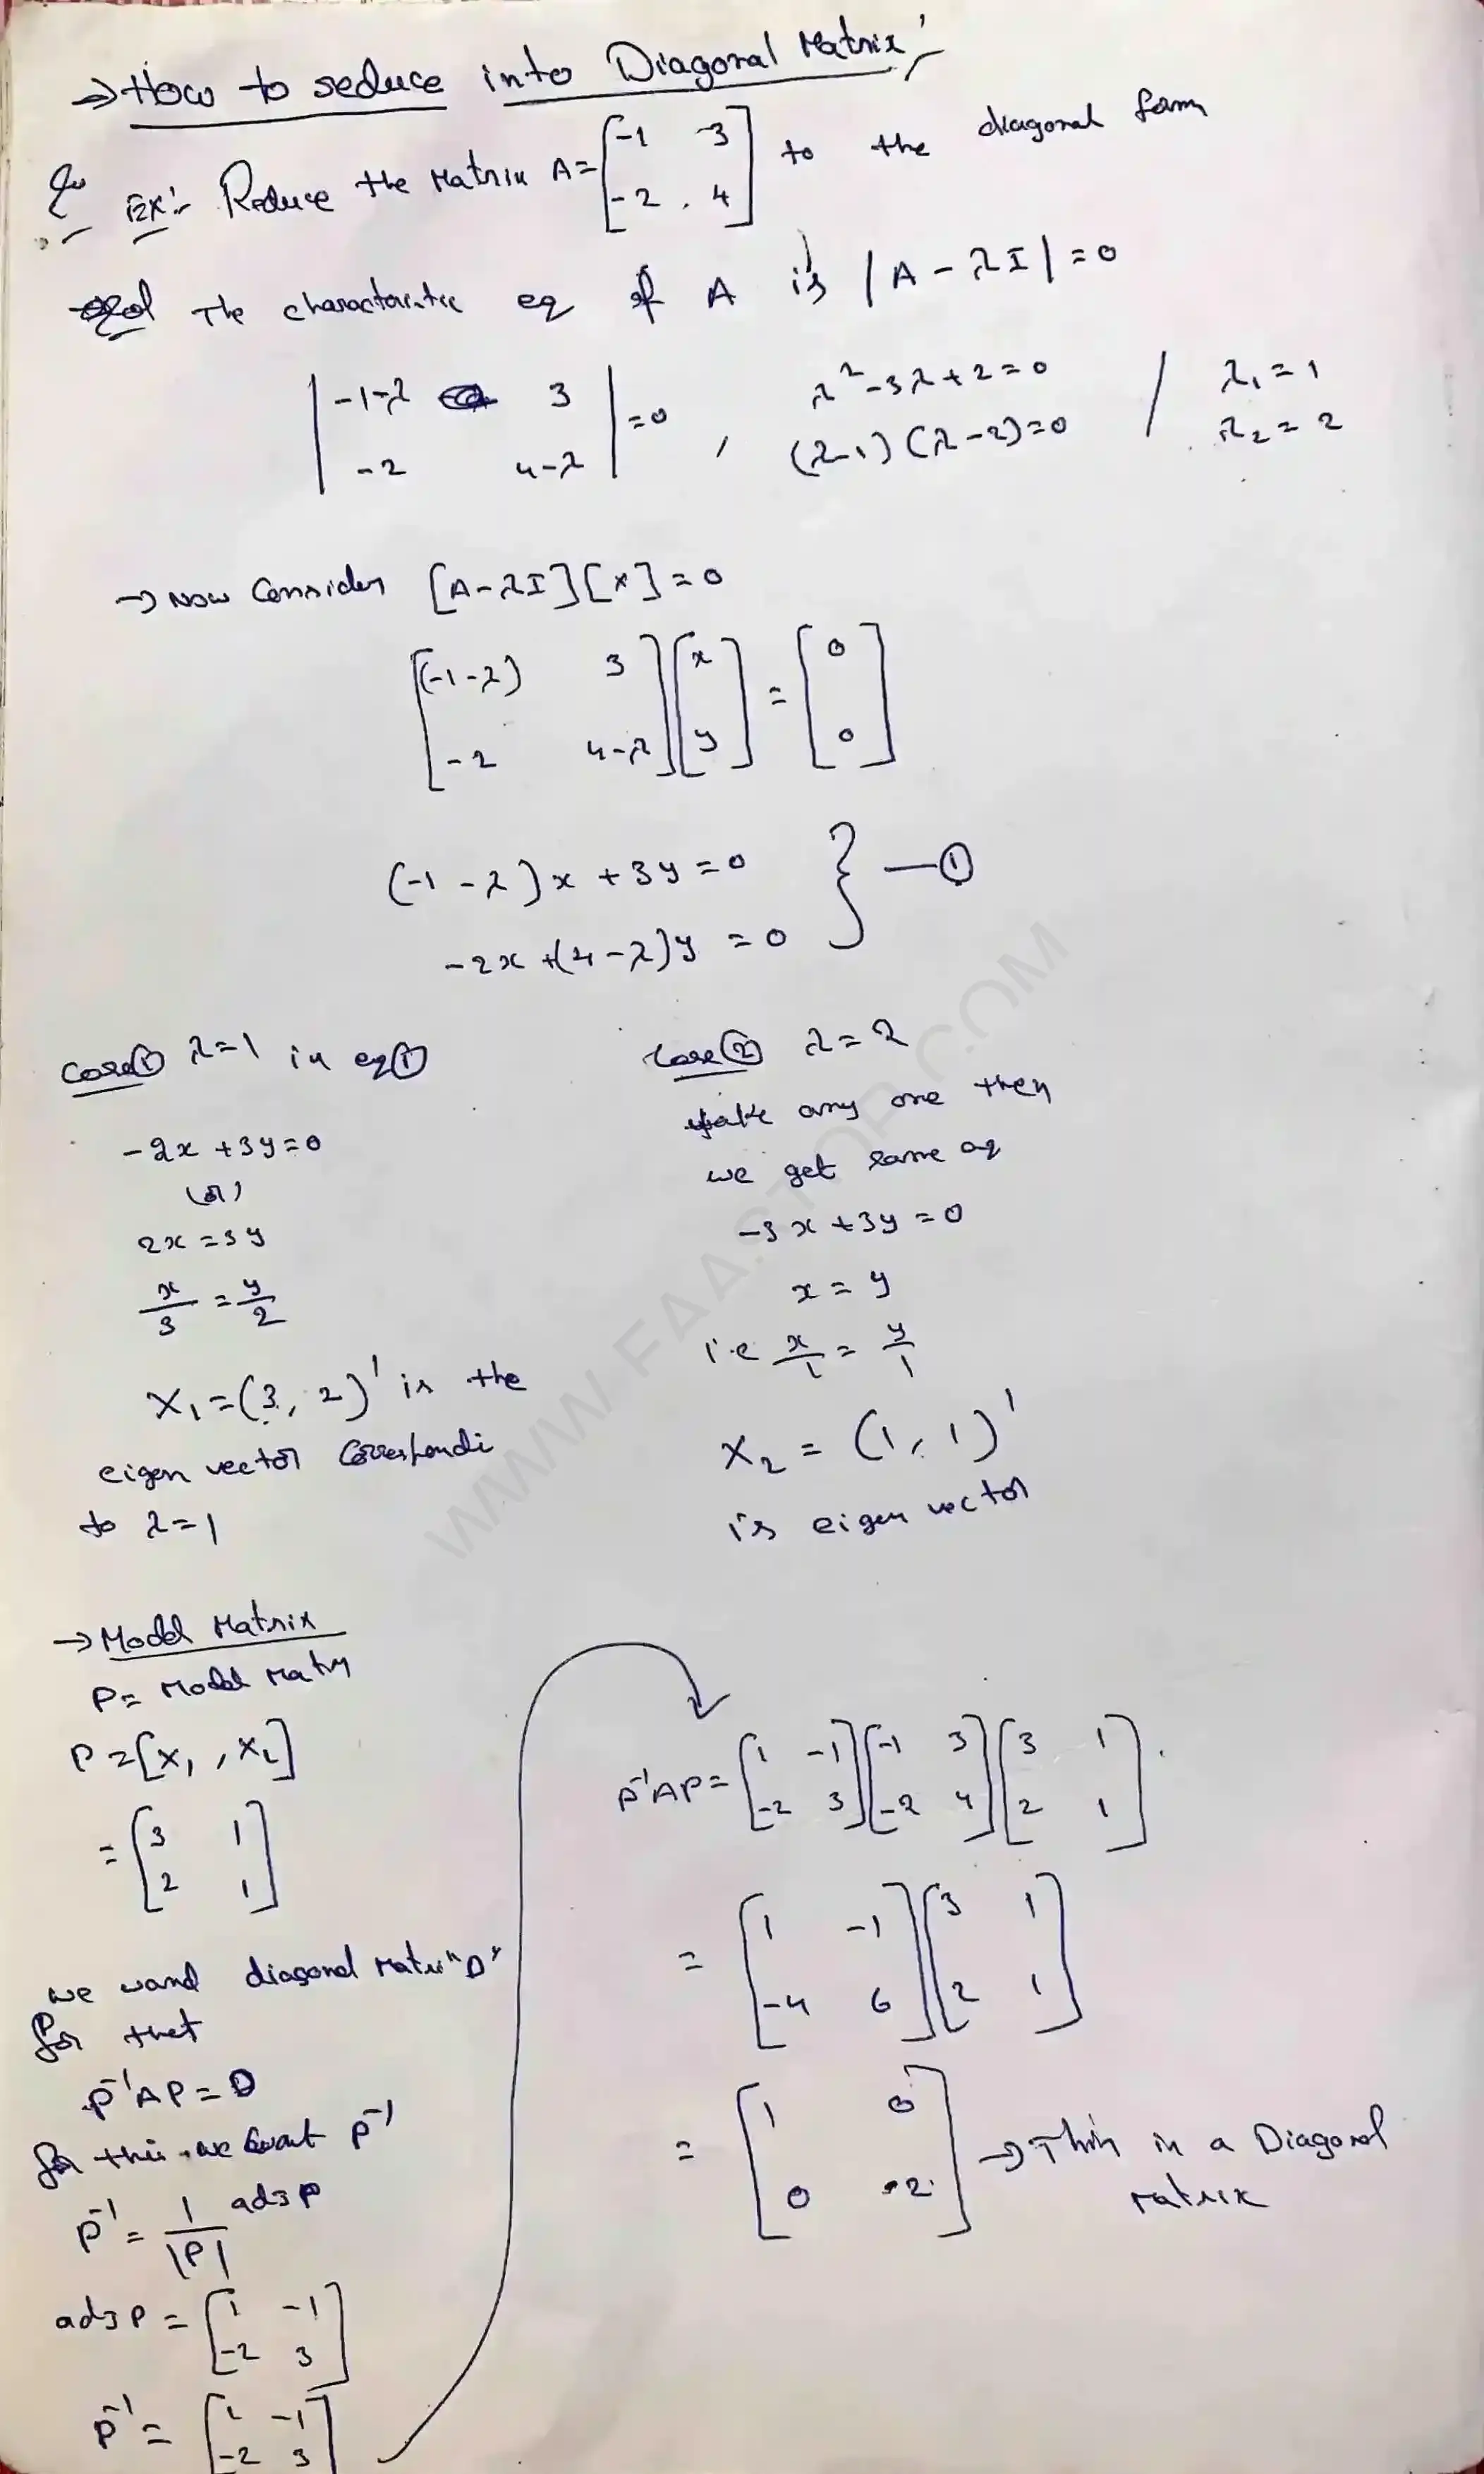 → How to reduce into Diagonal Matrix:-
Ex:- Reduce the Matrix A = [-1 3
-2, 4] to the diagonal form
Sol The characteristic eq of A is |A - λI| = 0
|-1-λ 3
-2 4-λ| = 0 , λ² - 3λ + 2 = 0 / λ₁ = 1
(λ-1)(λ-2) = 0 λ₂ = 2
→ Now Consider [A - λI][x] = 0
[(-1-λ) 3
-2 4-λ] [x
y] = [0
0]
(-1-λ)x + 3y = 0 } — ①
-2x + (4-λ)y = 0
Case① λ=1 in eq①
-2x + 3y = 0
(or)
2x = 3y
x/3 = y/2
X₁ = (3, 2)' is the
eigen vector Correspondi
to λ=1
Case② λ = 2
take any one then
we get same eq
-3x + 3y = 0
x = y
i.e x/1 = y/1
X₂ = (1, 1)'
is eigen vector
→ Model Matrix
P = Model Matrix
P = [X₁, X₂]
= [3 1
2 1]
we wand diagonal matrix "D"
for that
P⁻¹AP = D
for this we want P⁻¹
P⁻¹ = 1/|P| adj P
adj P = [1 -1
-2 3]
P⁻¹ = [1 -1
-2 3]
P⁻¹AP = [1 -1
-2 3] [-1 3
-2 4] [3 1
2 1]
= [1 -1
-4 6] [3 1
2 1]
= [1 0
0 2] → This is a Diagonal
matrix
WWW.FAASTOP.COM